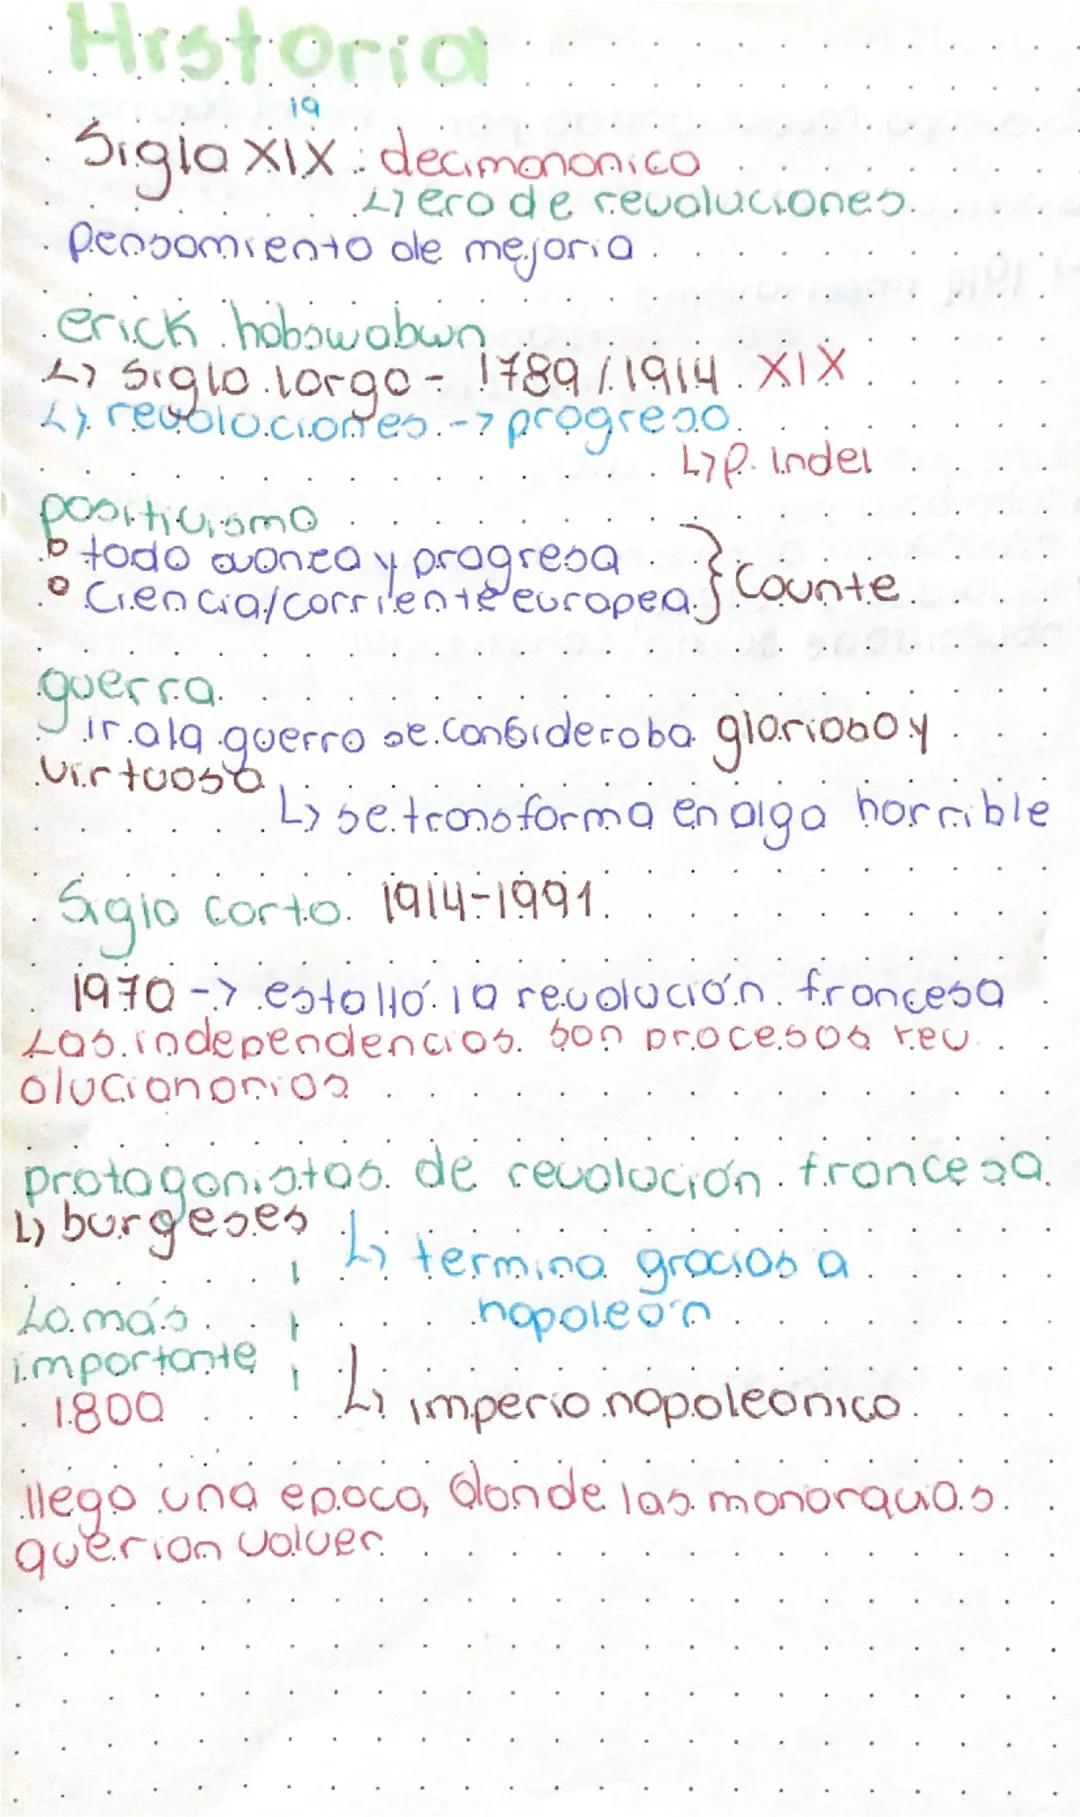 Historia
19
Siglo XIX: decimononico
↳ era de revoluciones
pensamiento de mejoria
erick hobswabwn
↳ siglo largo - 1789/1914. XIX
↳ revoluciones -> progreso
↳ p. indei
positivismo
° todo avanza y progresa
° Ciencia/corriente europea. } Counte
guerra
ir a la guerra se consideraba glorioso y
virtuoso
↳ se transforma en algo horrible
Siglo corto. 1914-1991.
1970 -> estalló la revolución francesa
Las independencias son procesos rev
olucionarios
protagonistas de revolución francesa
↳ burgeses
↳ termina gracias a
napoleón
Lo más
importante
1800
↳ imperio napoleonico
llego una epoca, donde las monarquias
querian volver